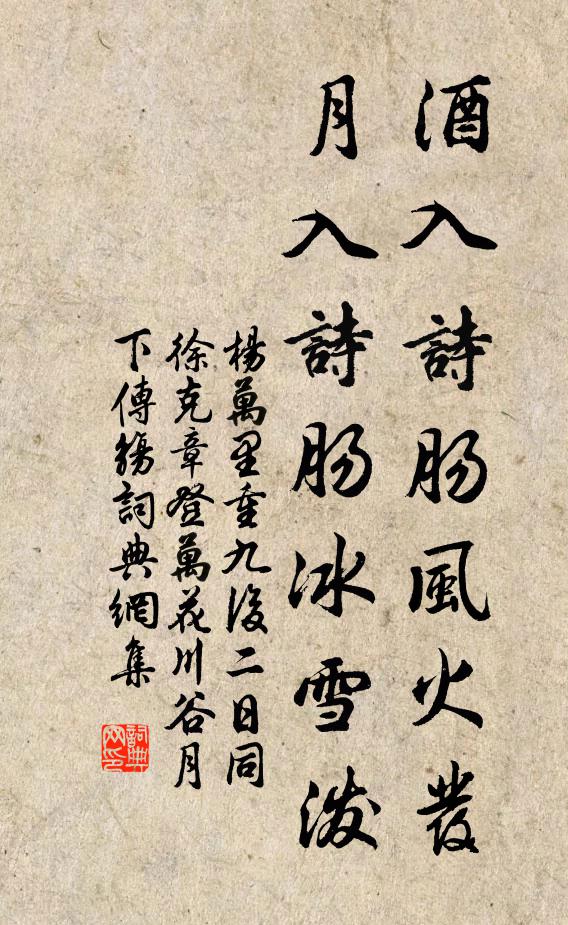 酒入詩肠風火發
月入詩肠冰雪潑
楊萬里重九後二日同
徐克章登萬花川谷月
下傳觴詞典網集
詞典網印